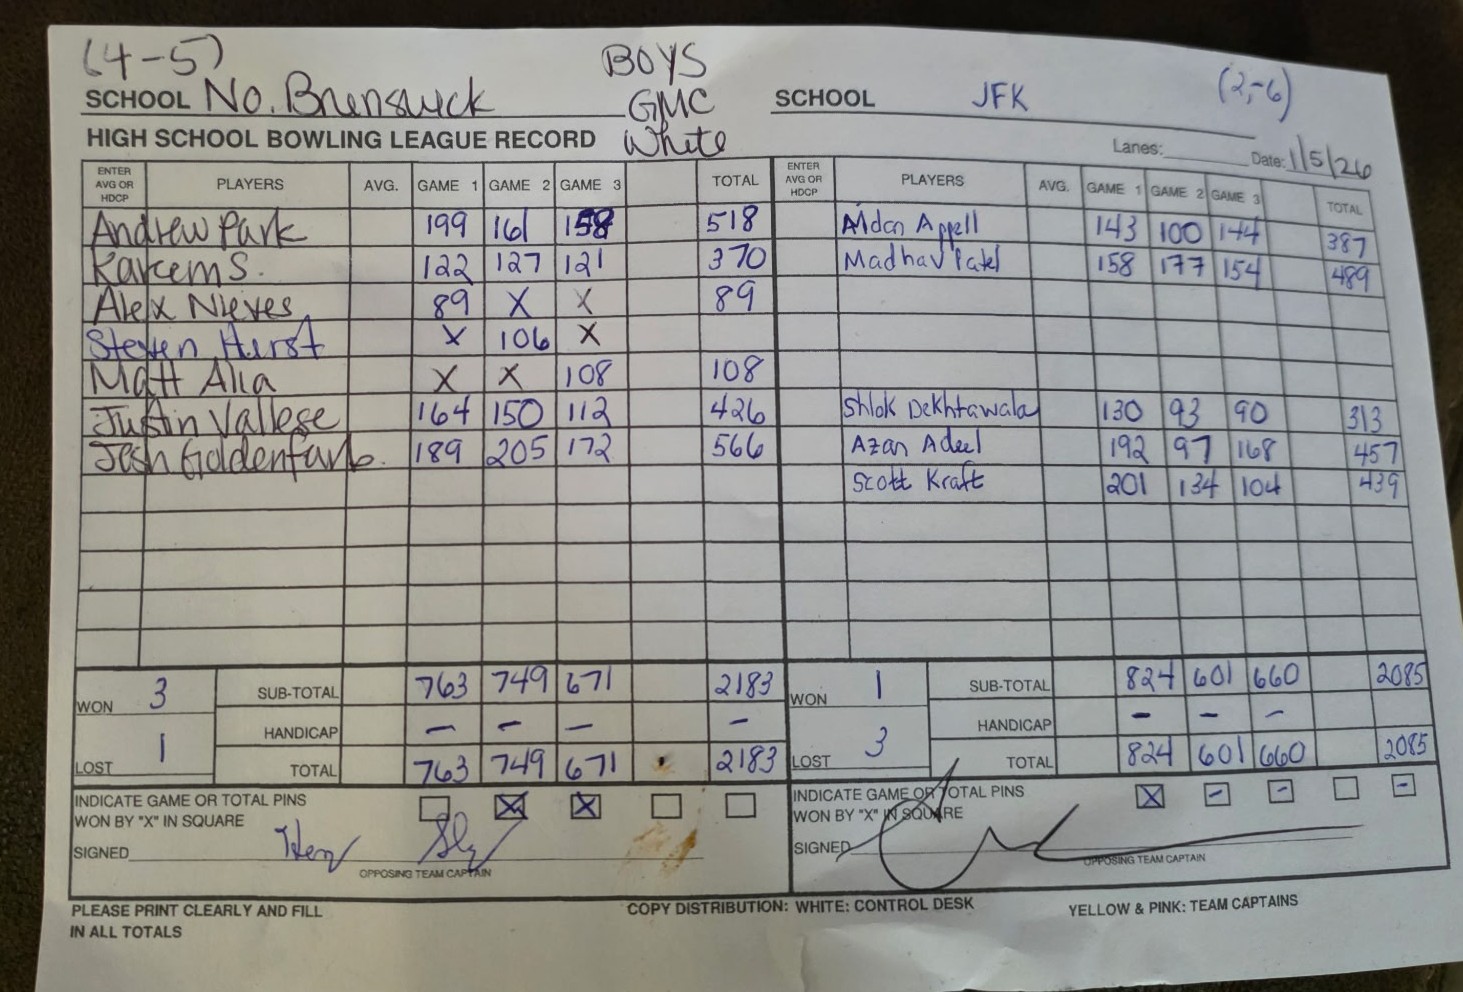 (4-5) BOYS (2,-6)
SCHOOL No. Brunswick GMC SCHOOL JFK
HIGH SCHOOL BOWLING LEAGUE RECORD White Lanes: Date: 1/5/26
ENTER AVG OR HDCP PLAYERS AVG. GAME 1 GAME 2 GAME 3 TOTAL ENTER AVG OR HDCP PLAYERS AVG. GAME 1 GAME 2 GAME 3 TOTAL
Andrew Park 199 161 158 518 Aidan Appell 143 100 144 387
Kareem S. 122 127 121 370 Madhav Patel 158 177 154 489
Alex Nieves 89 X X 89
Steven Hurst X 106 X
Matt Alia X X 108 108
Justin Vallese 164 150 112 426 Shlok Dekhtawala 130 93 90 313
Josh Goldenfarb. 189 205 172 566 Azan Adeel 192 97 168 457
Scott Kraft 201 134 104 439
WON 3 SUB-TOTAL 763 749 671 2183 WON 1 SUB-TOTAL 824 601 660 2085
HANDICAP – – – – HANDICAP – – –
LOST 1 TOTAL 763 749 671 2183 LOST 3 TOTAL 824 601 660 2085
INDICATE GAME OR TOTAL PINS X X INDICATE GAME OR TOTAL PINS X – – –
WON BY "X" IN SQUARE WON BY "X" IN SQUARE
SIGNED SIGNED
OPPOSING TEAM CAPTAIN OPPOSING TEAM CAPTAIN
PLEASE PRINT CLEARLY AND FILL COPY DISTRIBUTION: WHITE: CONTROL DESK YELLOW & PINK: TEAM CAPTAINS
IN ALL TOTALS